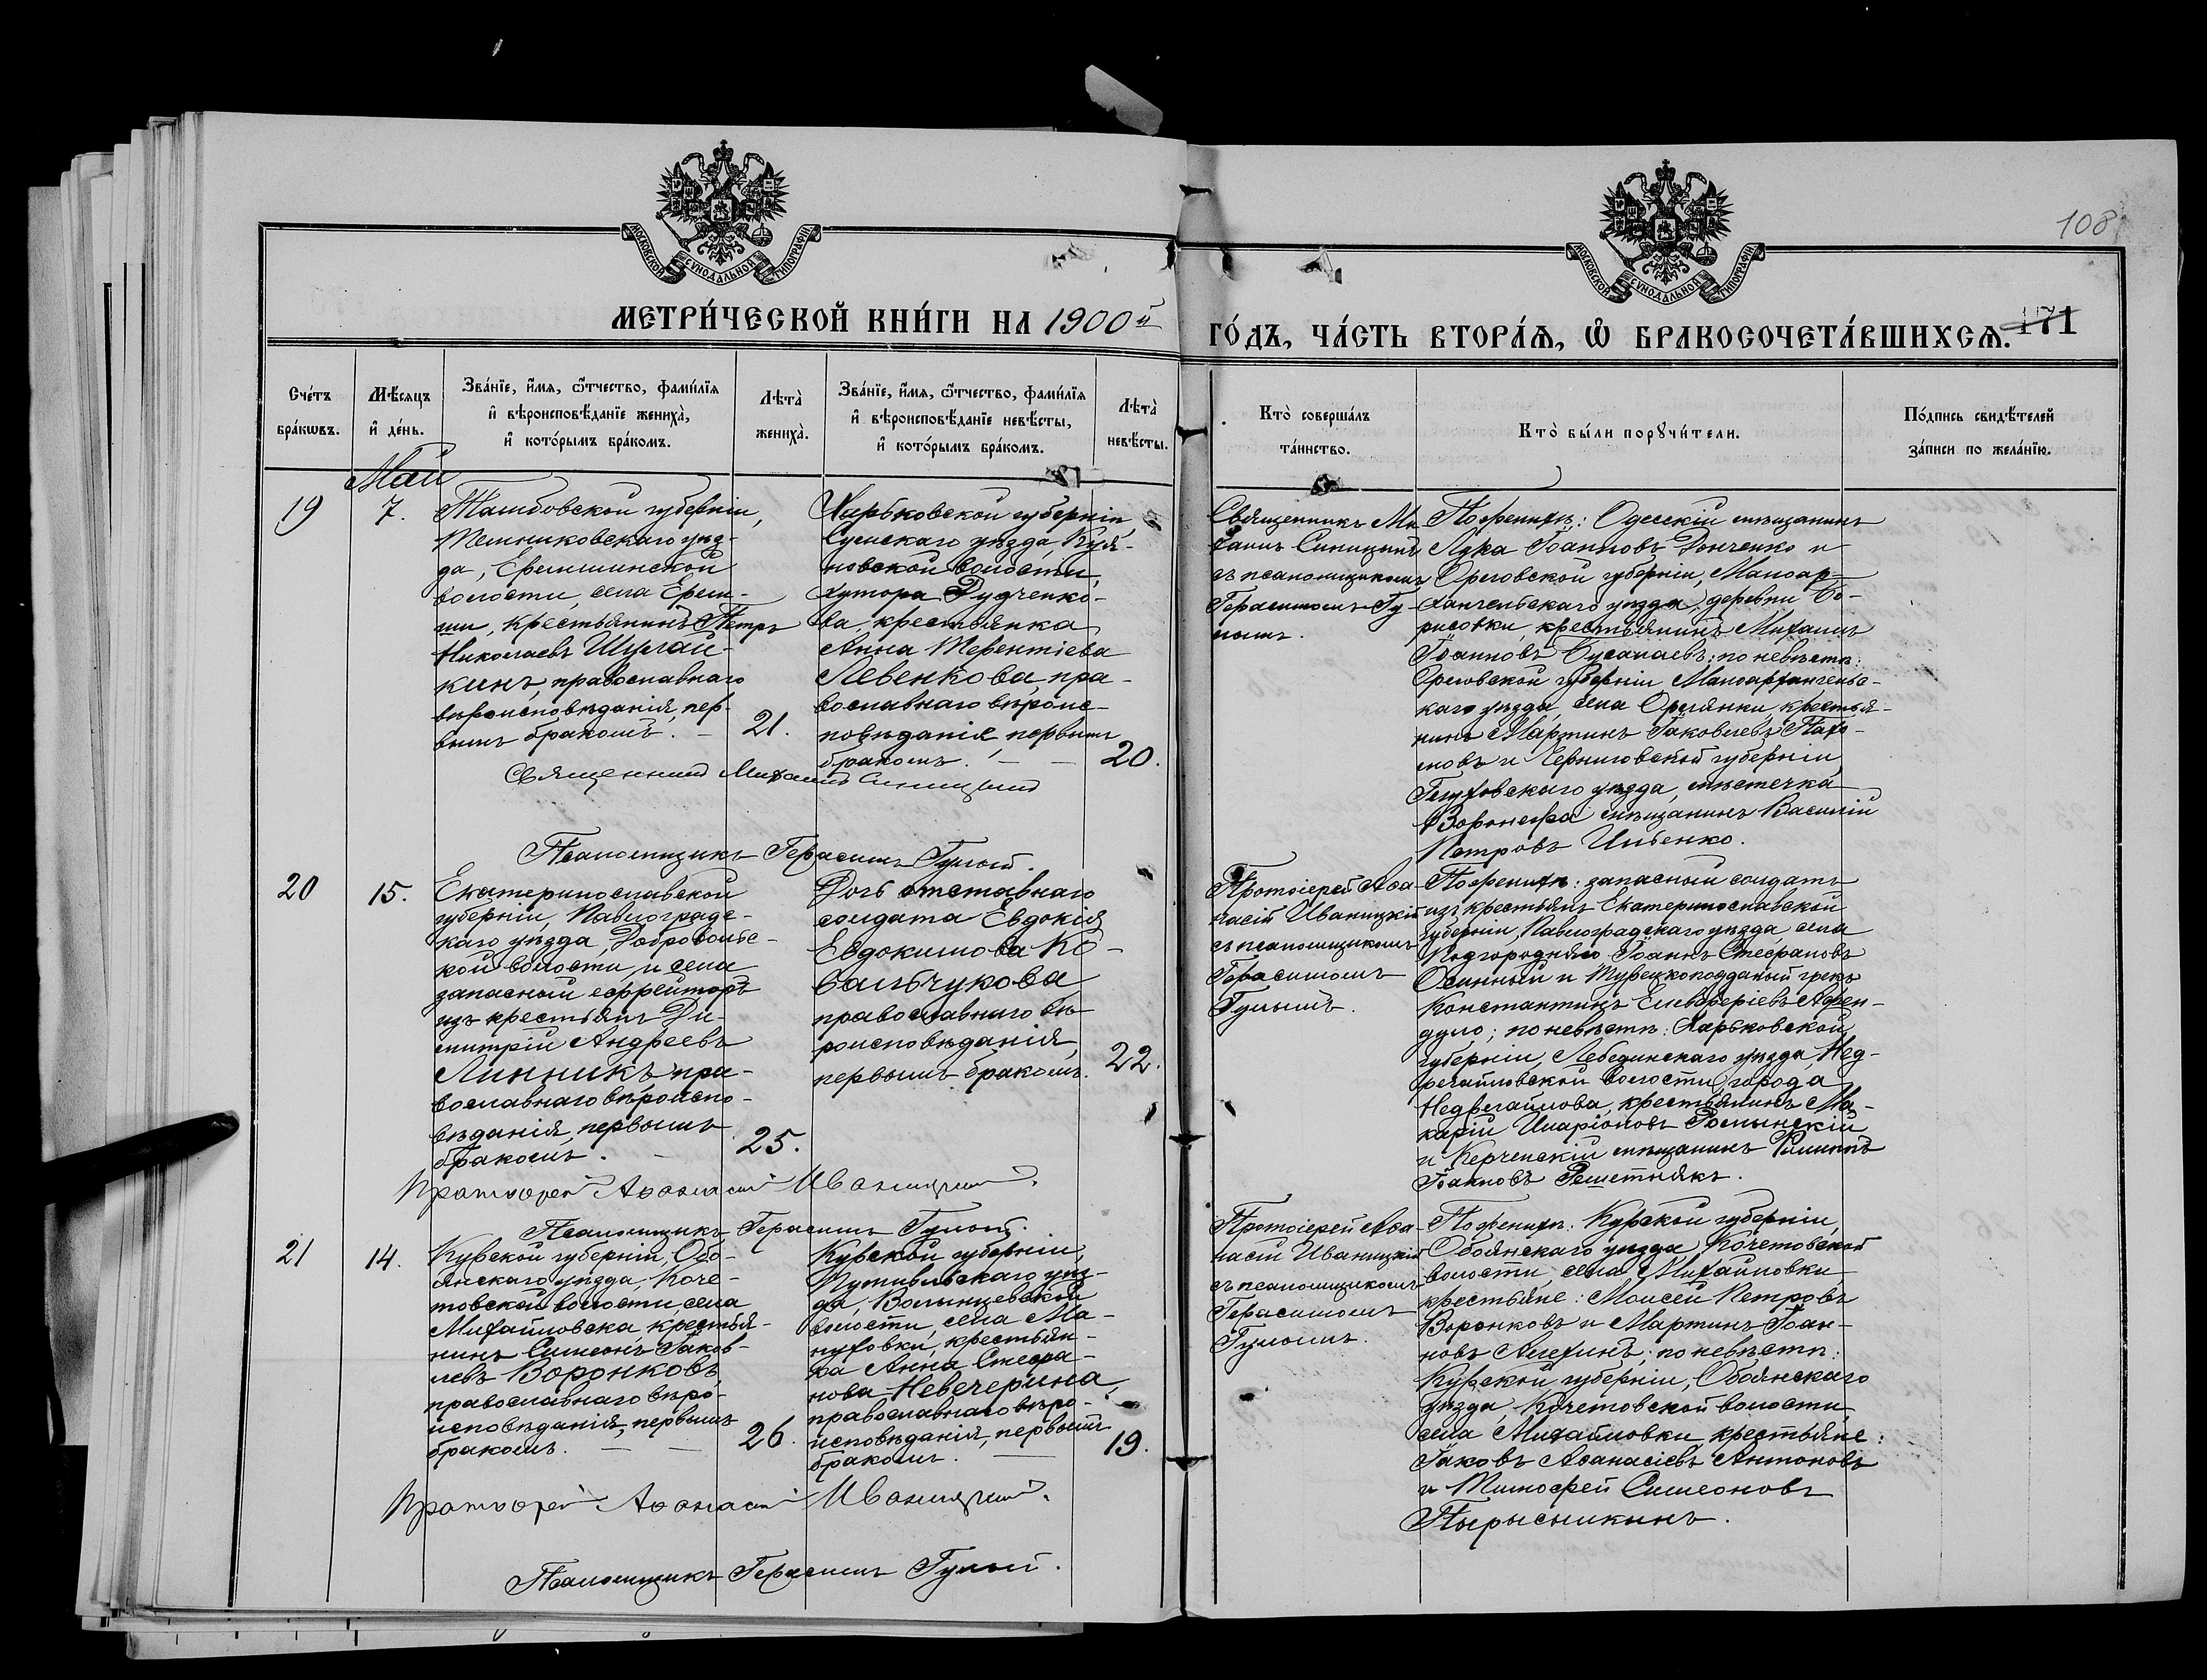 108
МОСКОВСКОЙ СѴНОДАЛЬНОЙ ТИПОГРАФІИ
МОСКОВСКОЙ СѴНОДАЛЬНОЙ ТИПОГРАФІИ
МЕТРИ́ЧЕСКОЙ КНИ́ГИ НА 1900й
ГО́ДЪ, ЧА́СТЬ ВТОРА́Ѧ, Ѡ҆ БРАКОСОЧЕТА́ВШИХСѦ. 171
Сче́тъ
бра́кѡвъ.
Мѣ́сяцъ
и҆ де́нь.
Зва́нїе, и҆́мѧ, ѻ҆́тчество, фами́лїѧ
и҆ вѣроисповѣ́данїе жениха̀,
и҆ кото́рымъ бра́комъ.
Лѣта̀
жениха̀.
Зва́нїе, и҆́мѧ, ѻ҆́тчество, фами́лїѧ
и҆ вѣроисповѣ́данїе невѣ́сты,
и҆ кото́рымъ бра́комъ.
Лѣта̀
невѣ́сты.
Кто̀ соверша́лъ
та́инство.
Кто̀ бы́ли порꙋчи́тели.
По́дпись свидѣ́телей
за́писи по жела́нїю.
Май
19
7.
Тамбовской губерніи,
Темниковскаго уѣз-
да, Еремшинской
волости, села Ерем-
ши, крестьянинъ Петръ
Николаевъ Шулай-
кинъ, православнаго
вѣроисповѣданія, пер-
вымъ бракомъ. —
21.
Харьковской губерніи
Сумскаго уѣзда, Куя-
новской волости,
хутора Дудченко-
ва, крестьянка
Анна Терентіева
Левенкова, пра-
вославнаго вѣроис-
повѣданія, первымъ
бракомъ. — —
20.
Священникъ Михаилъ Синицынъ
Псаломщикъ Герасимъ Гулый.
Священникъ Ми-
хаилъ Синицынъ
съ псаломщикомъ
Герасимомъ Гу-
лымъ.
По женихѣ: Одесскій мѣщанинъ
Лука Іоанновъ Донченко и
Орловской губерніи, Малоар-
хангельскаго уѣзда, деревни Бо-
рисовки, крестьянинъ Михаилъ
Іоанновъ Бусалаевъ; по невѣстѣ:
Орловской губерніи Малоархангельс-
каго уѣзда, села Орлянки, крестья-
нинъ Мартинъ Іаковлевъ Пахо-
мовъ и Черниговской губерніи
Глуховскаго уѣзда, мѣстечка
Воронежа мѣщанинъ Василій
Петровъ Цыбенко.
20
15.
Екатеринославской
губерніи, Павлоградс-
каго уѣзда, Добровольс-
кой волости и села
запасный ефрейторъ
изъ крестьянъ Ди-
митрій Андреевъ
Линникъ, пра-
вославнаго вѣроиспо-
вѣданія, первымъ
бракомъ. —
25.
Дочь отставнаго
солдата Евдокія
Евдокимова Ко-
вальчукова
православнаго вѣ-
роисповѣданія,
первымъ бракомъ.
22.
Протоіерей Аѳанасій Иваницкій.
Псаломщикъ Герасимъ Гулый.
Протоіерей Аѳа-
насій Иваницкій
съ псаломщикомъ
Герасимомъ
Гулымъ.
По женихѣ: запасный солдатъ
изъ крестьянъ Екатеринославской
губерніи, Павлоградскаго уѣзда села
Подгородняго Іоаннъ Стефановъ
Осинный и Турецкоподданый грекъ
Константинъ Елевферіевъ Афен-
дуло; по невѣстѣ: Харьковской
губерніи, Лебединскаго уѣзда, Нед-
ригайловской волости, города
Недригайлова, крестьянинъ Ма-
карій Иларіоновъ Ромынскій
и Керченскій мѣщанинъ Филиппъ
Іоанновъ Решетнякъ.
21
14.
Курской губерніи, Обо-
янскаго уѣзда, Коче-
товской волости, села
Михайловска, крестья-
нинъ Симеонъ Іаков-
левъ Воронковъ,
православнаго вѣро-
исповѣданія, первымъ
бракомъ. — —
26.
Курской губерніи,
Путивльскаго уѣз-
да, Волынцевской
волости, села Ма-
нуховки, крестьян-
ка Анна Стефа-
нова Невечерина,
православнаго вѣро-
исповѣданія, первымъ
бракомъ. —
19.
Протоіерей Аѳанасій Иваницкій.
Псаломщикъ Герасимъ Гулый.
Протоіерей Аѳа-
насій Иваницкій
съ псаломщикомъ
Герасимомъ
Гулымъ.
По женихѣ: Курской губерніи,
Обоянскаго уѣзда, Кочетовской
волости, села Михайловки
крестьяне: Моисей Петровъ
Воронковъ и Мартинъ Іоан-
новъ Алехинъ; по невѣстѣ:
Курской губерніи, Обоянскаго
уѣзда, Кочетовской волости,
села Михайловки, крестьяне:
Іаковъ Аѳанасіевъ Антоновъ
и Тимофей Симеоновъ